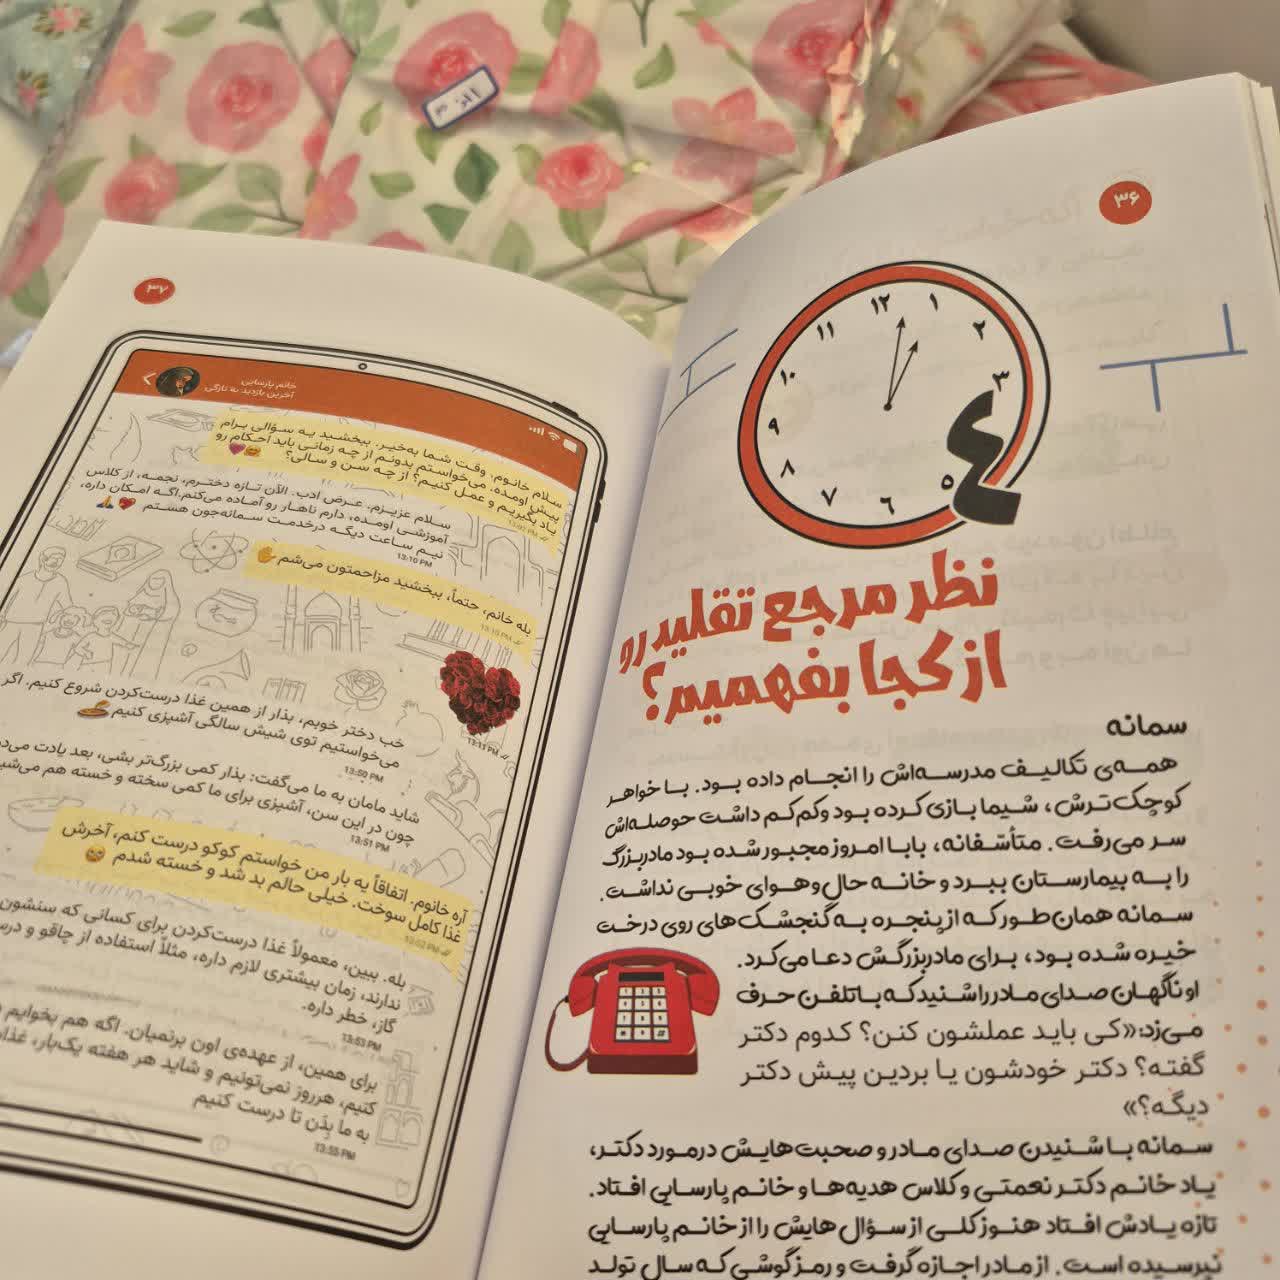 ۳۶
۱۲
۱
۲
۳
٤
۵
۶
۷
۸
۹
۱۰
۱۱
نظر مرجع تقلید رو
از کجا بفهمیم؟
سمانه
همه‌ی تکالیف مدرسه‌اش را انجام داده بود. با خواهر
کوچک‌ترش، شیما بازی کرده بود و کم‌کم داشت حوصله‌اش
سر می‌رفت. متأسّفانه، بابا امروز مجبور شده بود مادربزرگ
را به بیمارستان ببرد و خانه حال‌وهوای خوبی نداشت.
سمانه همان‌طور که از پنجره به گنجشک‌های روی درخت
خیره شده بود، برای مادربزرگش دعا می‌کرد.
او ناگهان صدای مادر را شنید که با تلفن حرف
می‌زد: «کی باید عملشون کنن؟ کدوم دکتر
گفته؟ دکتر خودشون یا بردین پیش دکتر
دیگه؟»
سمانه با شنیدن صدای مادر و صحبت‌هایش درمورد دکتر،
یاد خانم دکتر نعمتی و کلاس هدیه‌ها و خانم پارسایی افتاد.
تازه یادش افتاد هنوز کلی از سؤال‌هایش را از خانم پارسایی
نپرسیده است. از مادر اجازه گرفت و رمز گوشی که سال تولد
۳۷
خانم پارسایی
آخرین بازدید به تازگی
سلام خانوم. وقت شما به‌خیر. ببخشید یه سؤالی برام
پیش اومده. می‌خواستم بدونم از چه زمانی باید احکام رو
یاد بگیریم و عمل کنیم؟ از چه سن و سالی؟
سلام عزیزم. عرض ادب. الآن تازه دخترم، نجمه، از کلاس
آموزشی اومده، دارم ناهار رو آماده می‌کنم. اگه امکان داره،
نیم ساعت دیگه درخدمت سمانه‌جون هستم
13:10 PM
بله خانم، حتماً، ببخشید مزاحمتون می‌شم
13:10 PM
13:11 PM
خب دختر خوبم، بذار از همین غذا درست‌کردن شروع کنیم. اگر
می‌خواستیم توی شیش سالگی آشپزی کنیم
13:50 PM
شاید مامان به ما می‌گفت: بذار کمی بزرگ‌تر بشی، بعد یادت
چون در این سن، آشپزی برای ما کمی سخته و خسته هم
13:51 PM
آره خانوم. اتفاقاً یه بار من خواستم کوکو درست کنم، آخرش
غذا کامل سوخت. خیلی حالم بد شد و خسته شدم
13:52 PM
بله. ببین، معمولاً غذا درست‌کردن برای کسانی که سنشون
ندارند، زمان بیشتری لازم داره، مثلاً استفاده از چاقو و
گاز، خطر داره.
13:53 PM
برای همین، از عهده‌ی اون برنمیان. اگه هم بخوایم
کنیم، هرروز نمی‌تونیم و شاید هر هفته یک‌بار، غذا
به ما بِدَن تا درست کنیم
13:55 PM